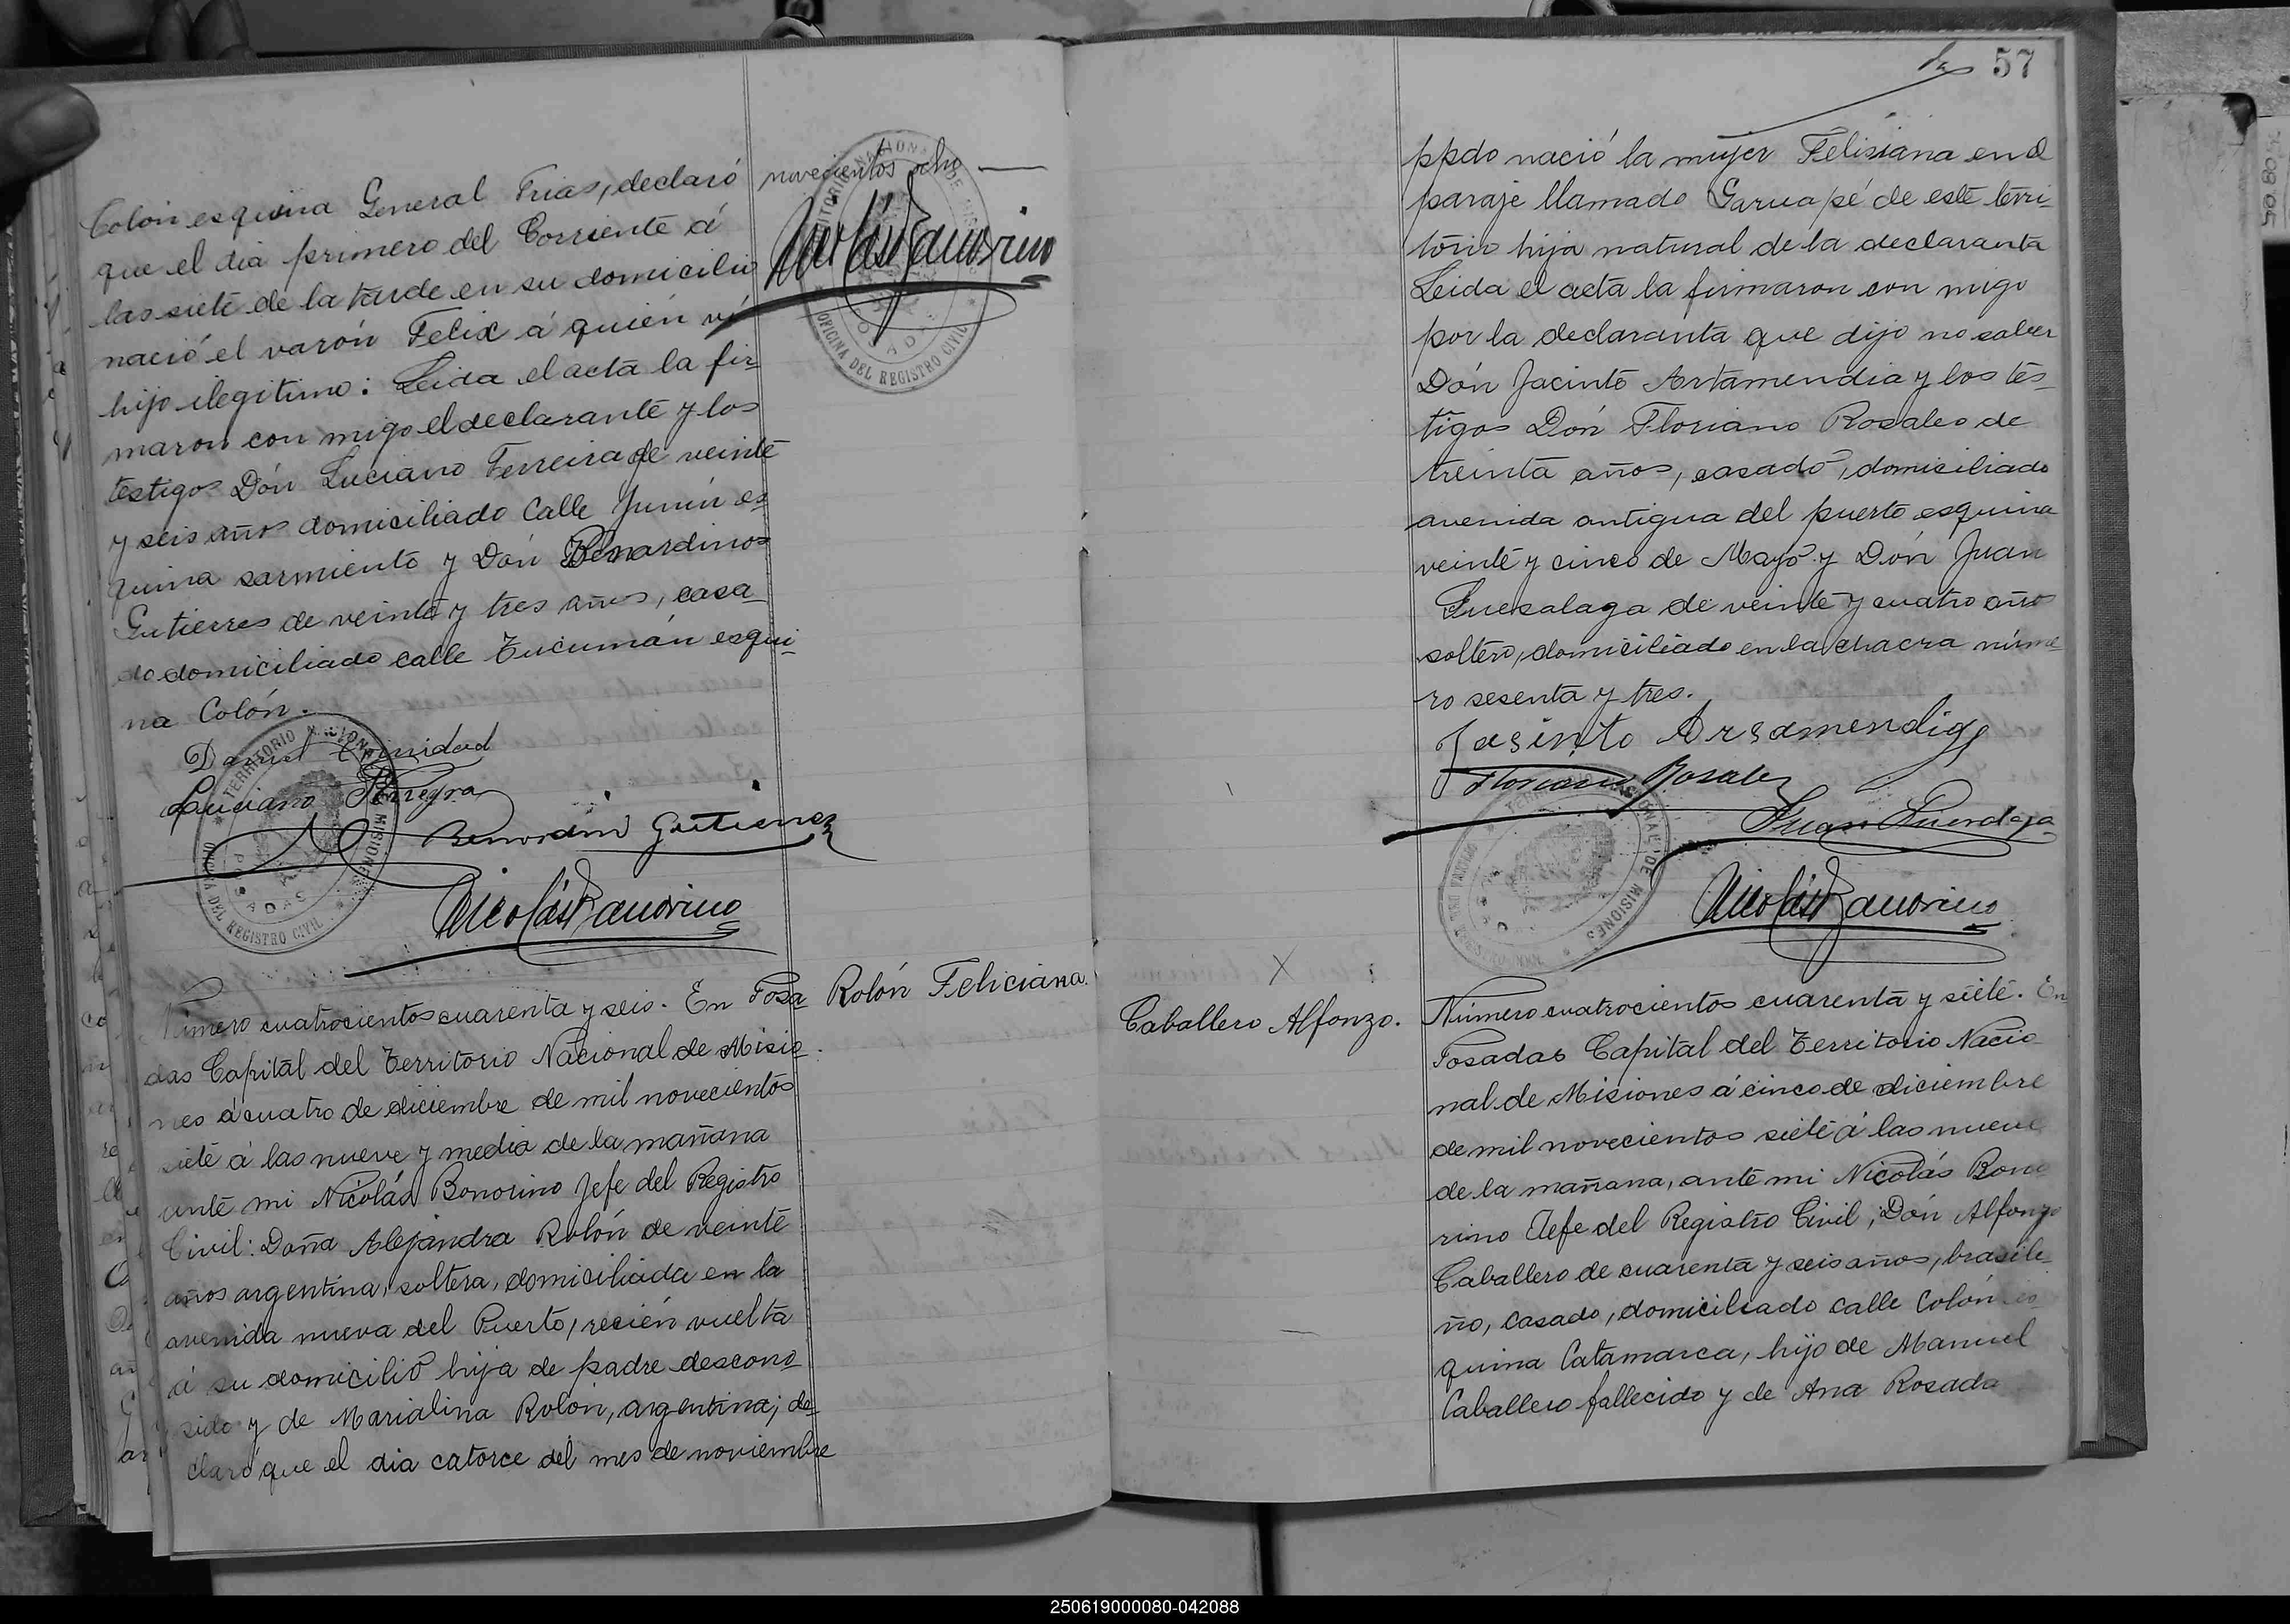 Colón esquina General Frias, declaró
que el dia primero del Corriente á
las siete de la tarde en su domicilio
nació el varón Felix á quién vi
hijo ilegitimo: Leida el acta la fir-
maron con migo el declarante y los
testigos Dón Luciano Ferreira de veinte
y seis años domiciliado Calle Junin es-
quina sarmiento y Dón Benardino
Gutierres de veinte y tres años, casa-
do domiciliado calle Tucumán esqui-
na Colón.
Daniel Trinidad
Luciano Ferreyra
Bernardin Gutierrez
Nicolás Bonorino
TERRITORIO NACIONAL DE MISIONES
POSADAS
OFICINA DEL REGISTRO CIVIL
novecientos ocho
Nicolás Bonorino
TERRITORIO NACIONAL DE MISIONES
POSADAS
OFICINA DEL REGISTRO CIVIL
Rolón Feliciana.
Número cuatrocientos cuarenta y seis. En Posa
das Capital del Territorio Nacional de Misio-
nes á cuatro de diciembre de mil novecientos
siete á las nueve y media de la mañana
ante mi Nicolás Bonorino Jefe del Registro
Civil: Doña Alejandra Rolón de veinte
años argentina, soltera, domiciliada en la
avenida nueva del Puerto, recién vuelta
á su domicilio hija de padre descono
sido y de Marialina Rolón, argentina; de-
claró que el dia catorce del mes de noviembre
57
ppdo nació la mujer Felisiana en el
paraje llamado Garuapé de este terri-
tório hija natural de la declaranta
Leida el acta la firmaron con migo
por la declaranta que dijo no saber
Dón Jacinto Artamendia y los tes-
tigos Dón Floriano Rosales de
treinta años, casado, domiciliado
avenida antigua del puerto esquina
veinte y cinco de Mayo y Dón Juan
Luesalaga de veinte y cuatro años
soltero, domiciliado en la chacra núme-
ro sesenta y tres.
Jasinto Arsamendia
Floriano Rosales
Juan
Nicolás Bonorino
TERRITORIO NACIONAL DE MISIONES
X
Caballero Alfonzo.
Número cuatrocientos cuarenta y siete. En
Posadas Capital del Territorio Nacio
nal de Misiones á cinco de diciembre
de mil novecientos siete á las nueve
de la mañana, ante mi Nicolás Bono
rino Jefe del Registro Civil; Dón Alfonzo
Caballero de cuarenta y seis años, brasile-
ño, casado, domiciliado calle Colón es
quina Catamarca, hijo de Manuel
Caballero fallecido y de Ana Rosada
250619000080-042088